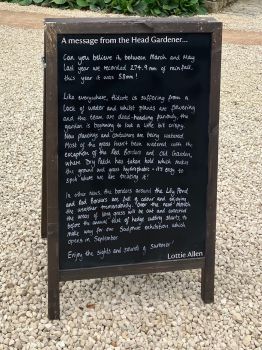 A message from the Head Gardener...
Can you believe it, between March and May
last year we recorded 274.9 mm of rainfall,
this year it was 58mm!
Like everywhere, Hidcote is suffering from a
lack of water and whilst plants are flowering
and the team are dead-heading furiously, the
garden is beginning to look a little bit crispy.
New planting and containers are being watered.
Most of the grass hasn't been watered with the
exception of the Red Borders and Old Garden,
where Dry Patch has taken hold which makes
the ground and grass hydrophobic - it's easy to
spot where we are treating it!
In other news, the borders around the Lily Pond
and Red Borders are full of colour and enjoying
the weather tremendously. Over the next month
the areas of long grass will be cut and removed
before the annual task of hedge cutting starts, to
make way for our Sculpture exhibition which
opens in September
Enjoy the sights and sounds of Summer!
Lottie Allen